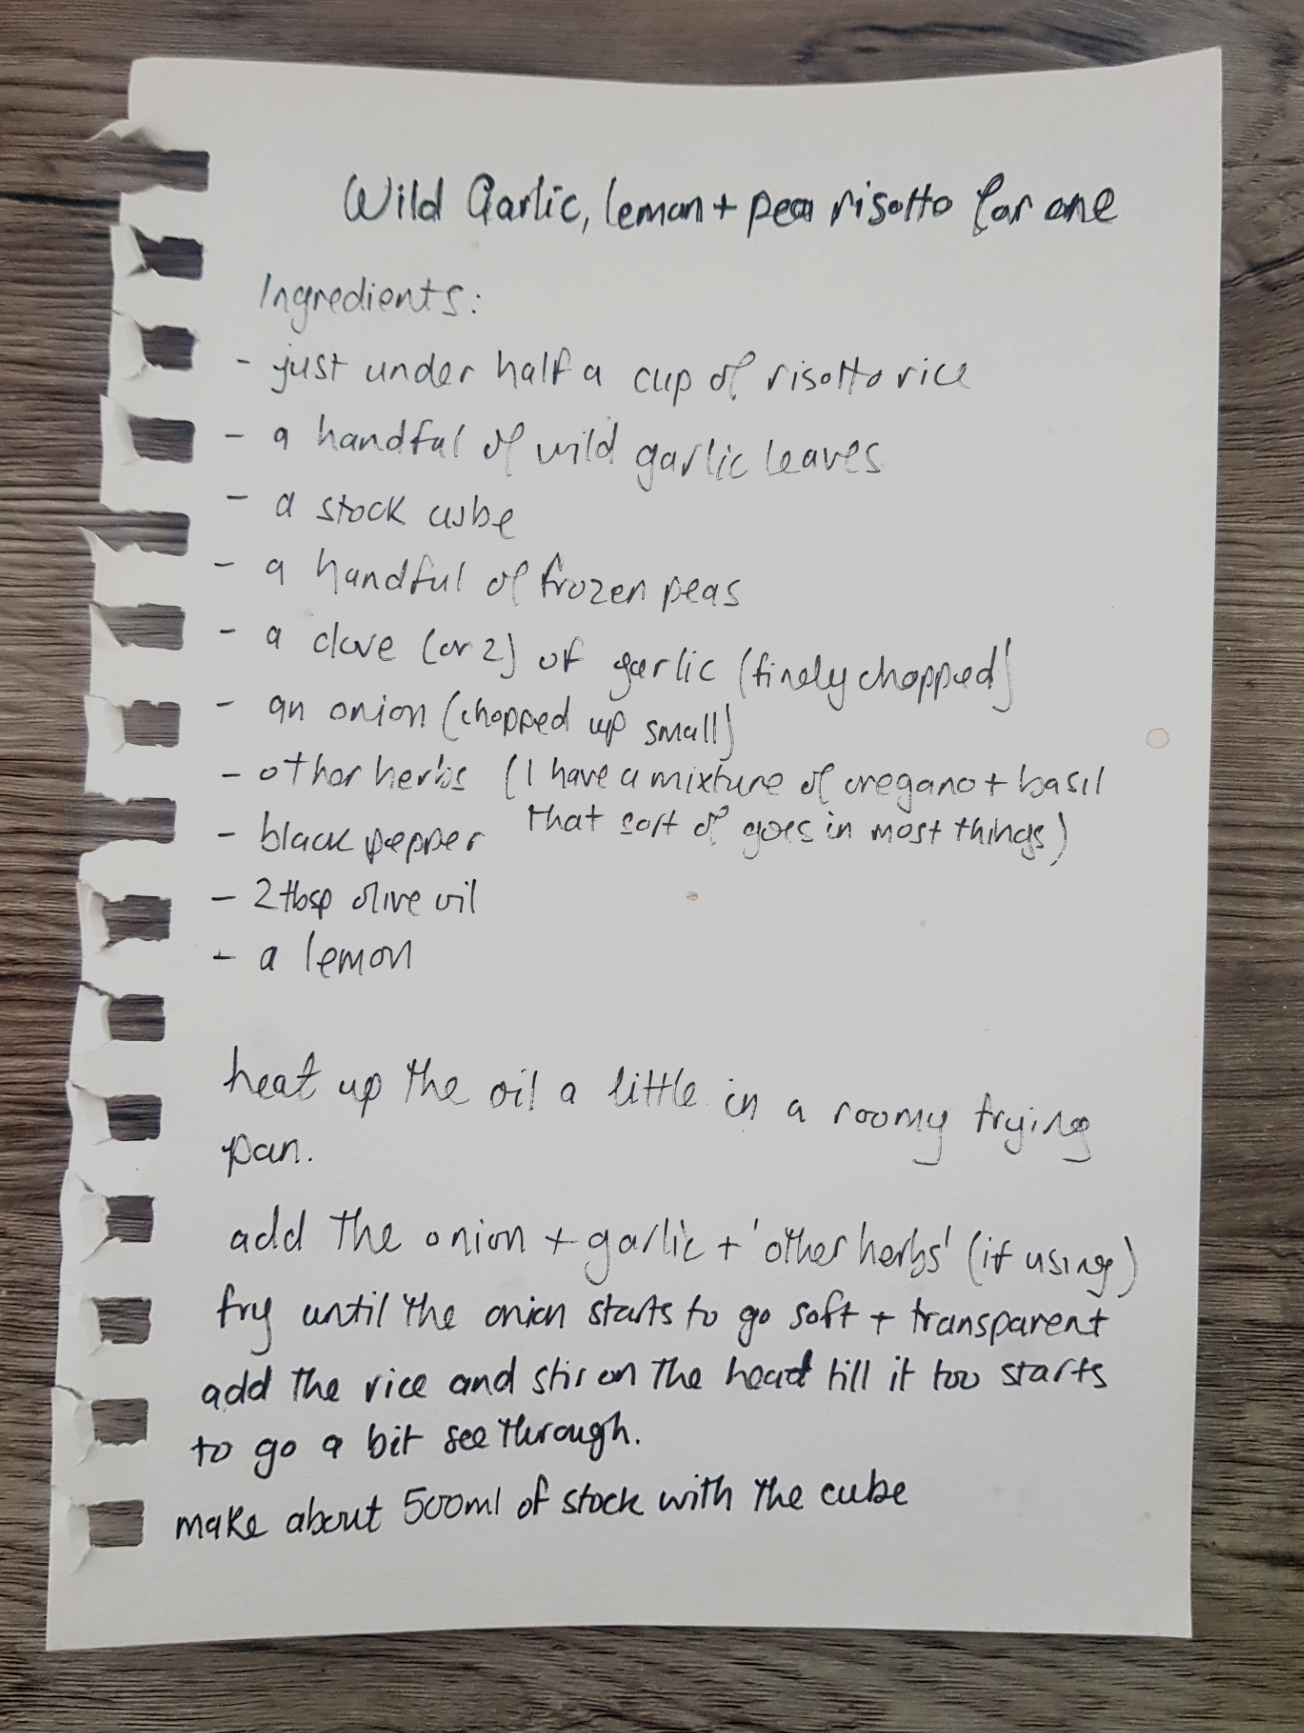 Wild Garlic, lemon + pea risotto for one
Ingredients:
- just under half a cup of risotto rice
- a handful of wild garlic leaves
- a stock cube
- a handful of frozen peas
- a clove (or 2) of garlic (finely chopped)
- an onion (chopped up small)
- other herbs (I have a mixture of oregano + basil
that sort of goes in most things)
- black pepper
- 2 tbsp olive oil
- a lemon
heat up the oil a little in a roomy frying
pan.
add the onion + garlic + 'other herbs' (if using)
fry until the onion starts to go soft + transparent
add the rice and stir on the heat till it too starts
to go a bit see through.
make about 500ml of stock with the cube